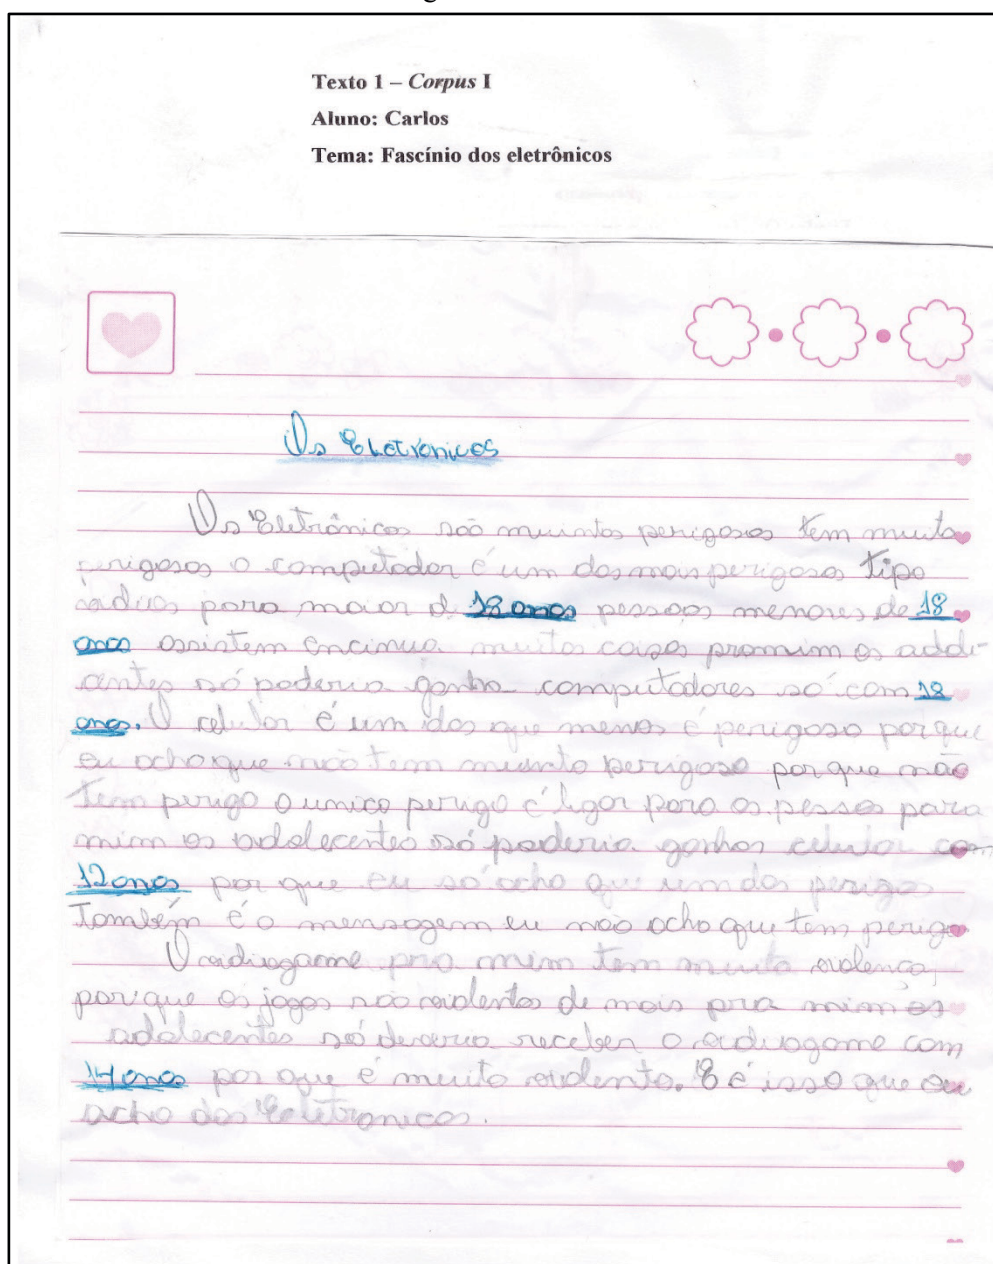 Texto 1 – Corpus I
Aluno: Carlos
Tema: Fascínio dos eletrônicos
Os Eletrônicos
Os Eletrônicos são muintos perigosos tem muito
perigosos o computador é um dos mais perigosos tipo
vidios para maior d 18 anos pessoas menores de 18
anos assistem encinua muitas coisas pramim os adole-
centes só poderia ganha computadores só com 18
anos. O celular é um dos que menos é perigoso por que
eu acho que não tem muinto perigoso por que não
tem perigo o unico perigo é ligar para as pessoas para
mim os adolecentes só poderia ganhar celular com
12 anos por que eu só acho que um dos perigos
Também é o mensagem eu não acho que tem perigo
O vidiogame pra mim tem muita violença,
por que os jogos são violentos de mais pra mim os
adolecentes só deveria receber o vidiogame com
14 anos por que é muito violento. E é isso que eu
acho dos Eletronicos.